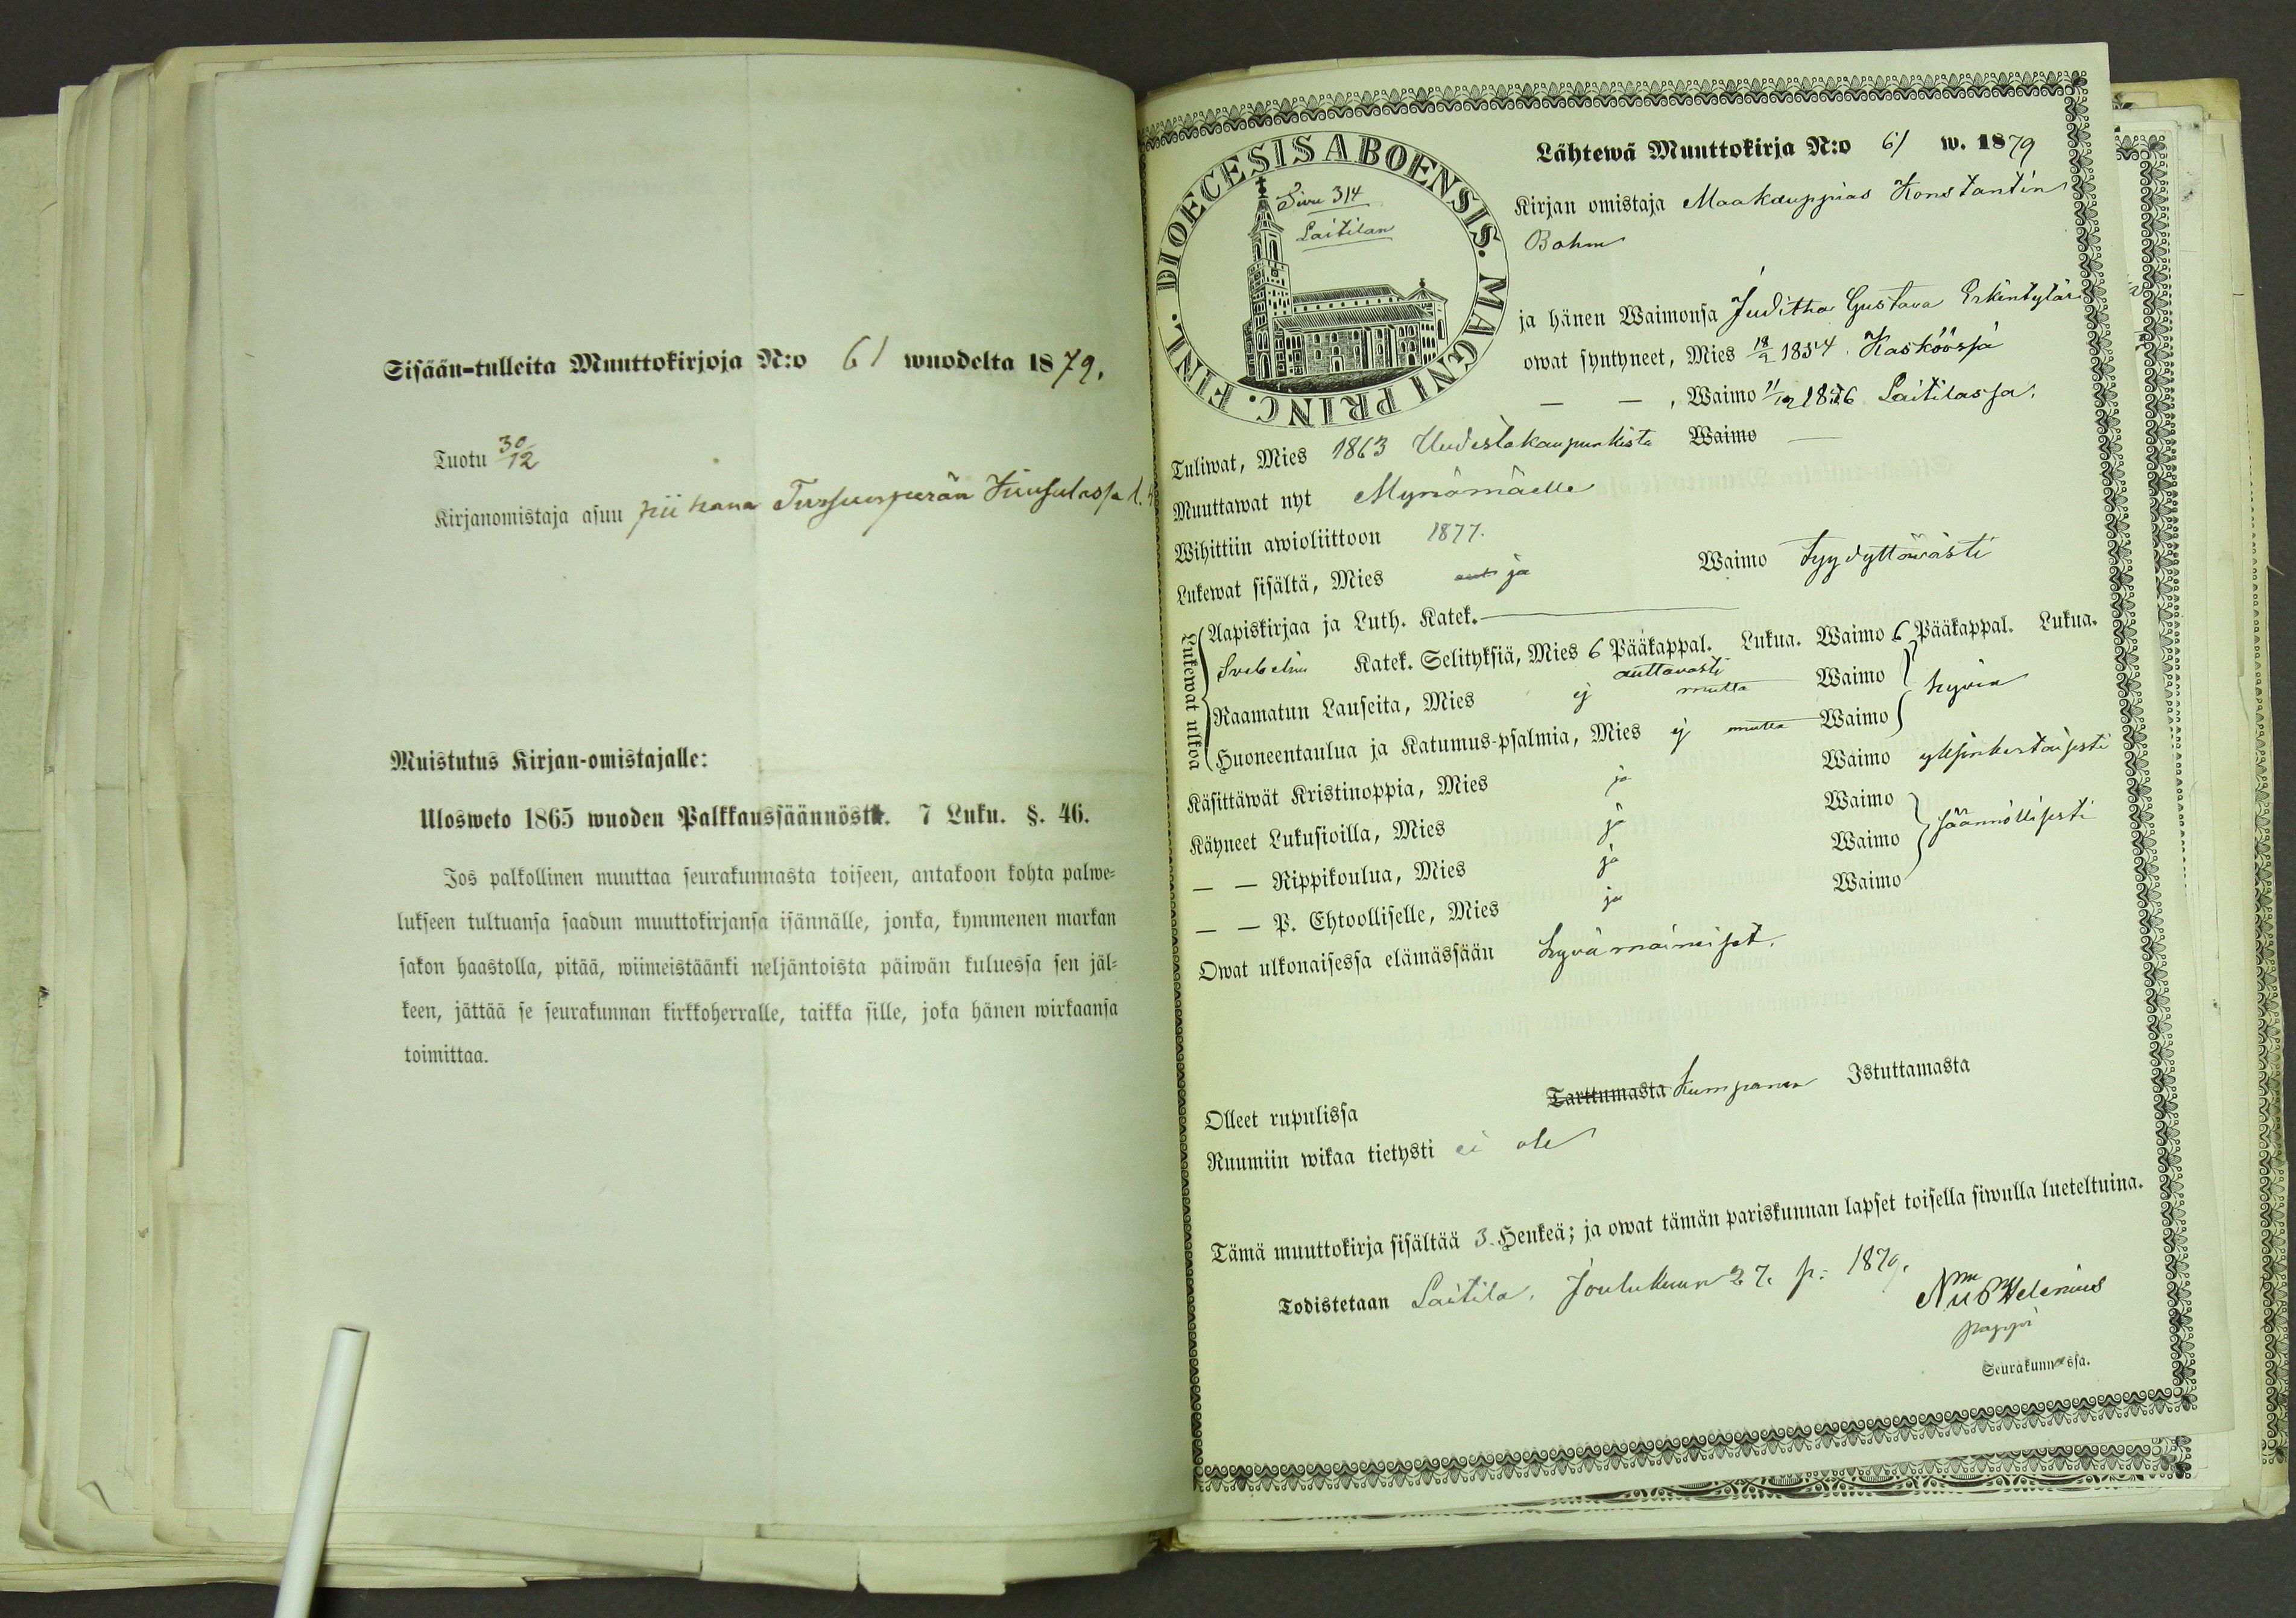 Sisään-tulleita Muuttokirjoja N:o 61 wuodelta 1879.
Tuotu 30/12
Kirjanomistaja asuu piikana
Muistutus Kirjan-omistajalle:
Ulosweto 1865 wuoden Palkkaussäännöst. 7 Luku. §. 46.
Jos palkollinen muuttaa seurakunnasta toiseen, antakoon kohta palwe-
lukseen tultuansa saadun muuttokirjansa isännälle, jonka, kymmenen markan
sakon haastolla, pitää, wiimeistäänki neljäntoista päiwän kuluessa sen jäl-
keen, jättää se seurakunnan kirkkoherralle, taikka sille, joka hänen wirkaansa
toimittaa.
DIOECESIS ABOENSIS. MAGNI PRINC. FINL.
Sivu 314
Laitilan
Lähtewä Muuttokirja N:o 61 w. 1879
Kirjan omistaja Maakauppias Konstantin
Bohm
ja hänen Waimonsa Juditha Gustava Erkintytär
owat syntyneet, Mies 18/9 1854 Kasköössä
— — , Waimo 11/12 1856 Laitilassa.
Tuliwat, Mies 1863 Uudestakaupunkista Waimo —
Muuttawat nyt Mynämäelle
Wihittiin awioliittoon 1877.
Lukewat sisältä, Mies ja Waimo tyydyttäwästi
Lukewat ulkoa
Aapiskirjaa ja Luth. Katek. —
Svebelius Katek. Selityksiä, Mies 6 Pääkappal. Lukua. Waimo 6 Pääkappal. Lukua.
auttavasti
Raamatun Lauseita, Mies ej mutta Waimo hyvin
Huoneentaulua ja Katumus-psalmia, Mies ej mutta Waimo
Käsittäwät Kristinoppia, Mies ja Waimo yksinkertaisesti
Käyneet Lukusioilla, Mies ja Waimo
— — Rippikoulua, Mies ja Waimo säännöllisesti
— — P. Ehtoolliselle, Mies ja Waimo
Owat ulkonaisessa elämässään hyvämaineiset.
Olleet rupulissa Tarttumasta kumpanen Istuttamasta
Ruumiin wikaa tietysti ei ole
Tämä muuttokirja sisältää 3. Henkeä; ja owat tämän pariskunnan lapset toisella siwulla lueteltuina.
Todistetaan Laitila, Joulukuun 27. p: 1879.
Helenius
pappi
Seurakunnassa.